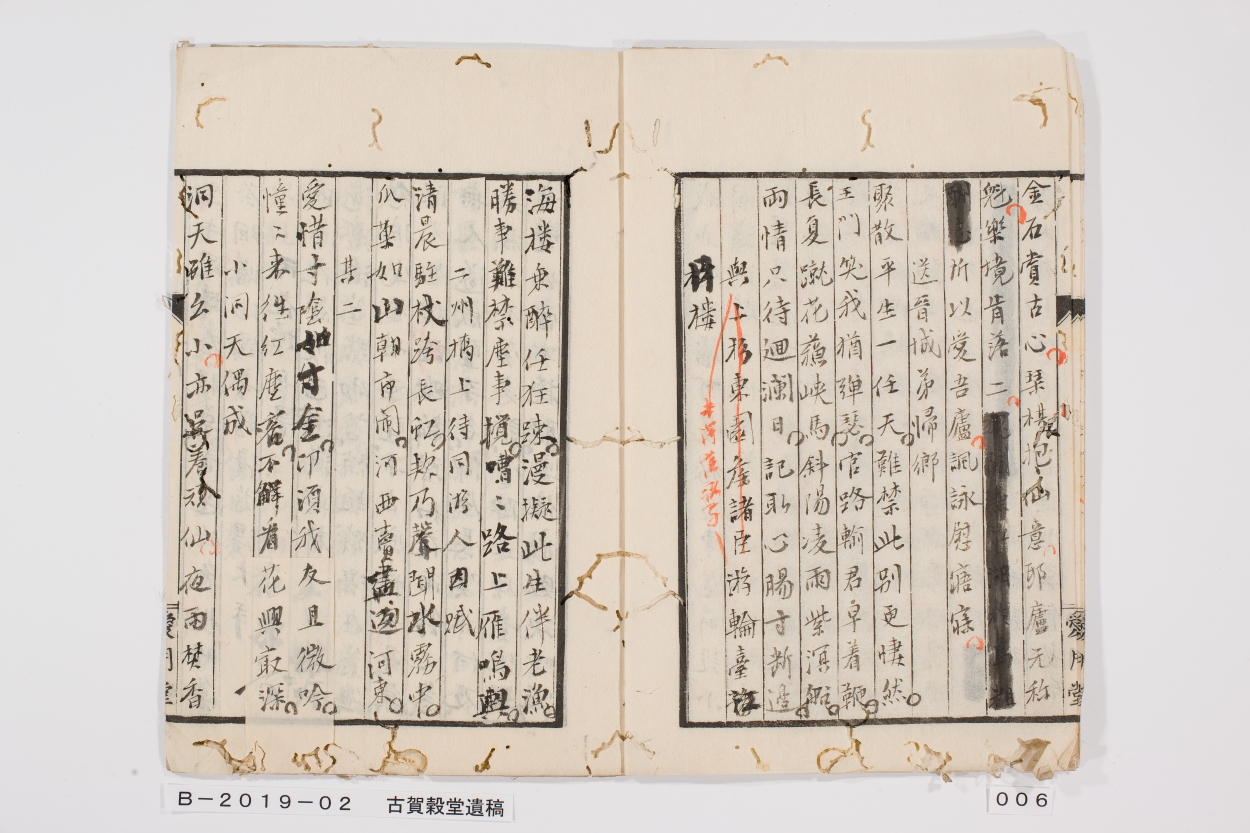 金石賞古心琴棋抱仙意耶廬元称
兜樂境肯落二
所以愛吾廬諷詠慰寤寐
送晉城弟歸鄉
聚散平生一任天難禁此別更悽然
王門笑我猶彈瑟官路輸君早着鞭
長夏蹴花藹峽馬斜陽凌雨紫溟舩
兩情只待迴瀾日記取心腸寸断邉
與上杉東園諸臣游輪臺
樓
海楼乗醉任狂踈漫擬此生伴老漁
勝事難禁塵事攪嘈〻路上雁鳴輿
二州橋上待同游人因賦
清晨駐杖跨長虹欵乃聲聞水霧中
瓜菓如山朝市閙河西賣盡適河東
其二
愛惜寸陰如寸金卬須我友且微吟
憧〻来往紅塵客不解看花興最深
小洞天偶成
洞天雖么小亦眷頑仙夜雨焚香
愛月堂
B－2019－02　古賀穀堂遺稿
006